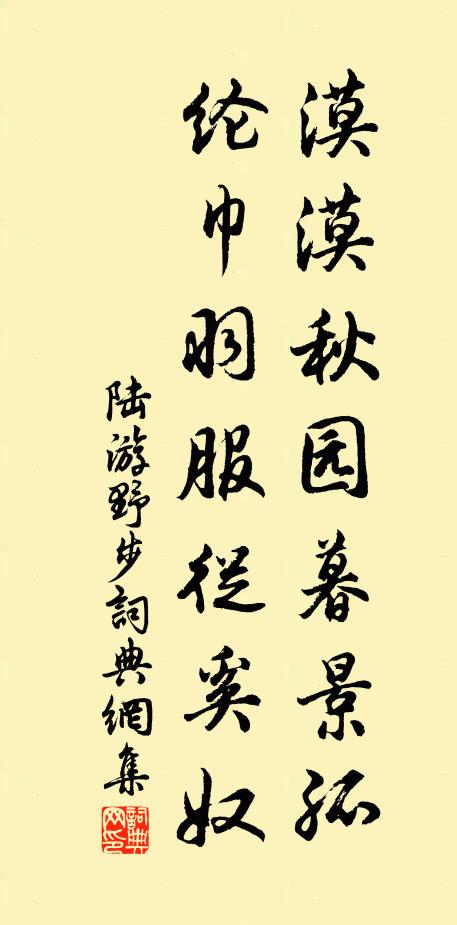 漠漠秋园暮景孤
纶巾羽服從奚奴
陆游野步詞典網集
詞典网印